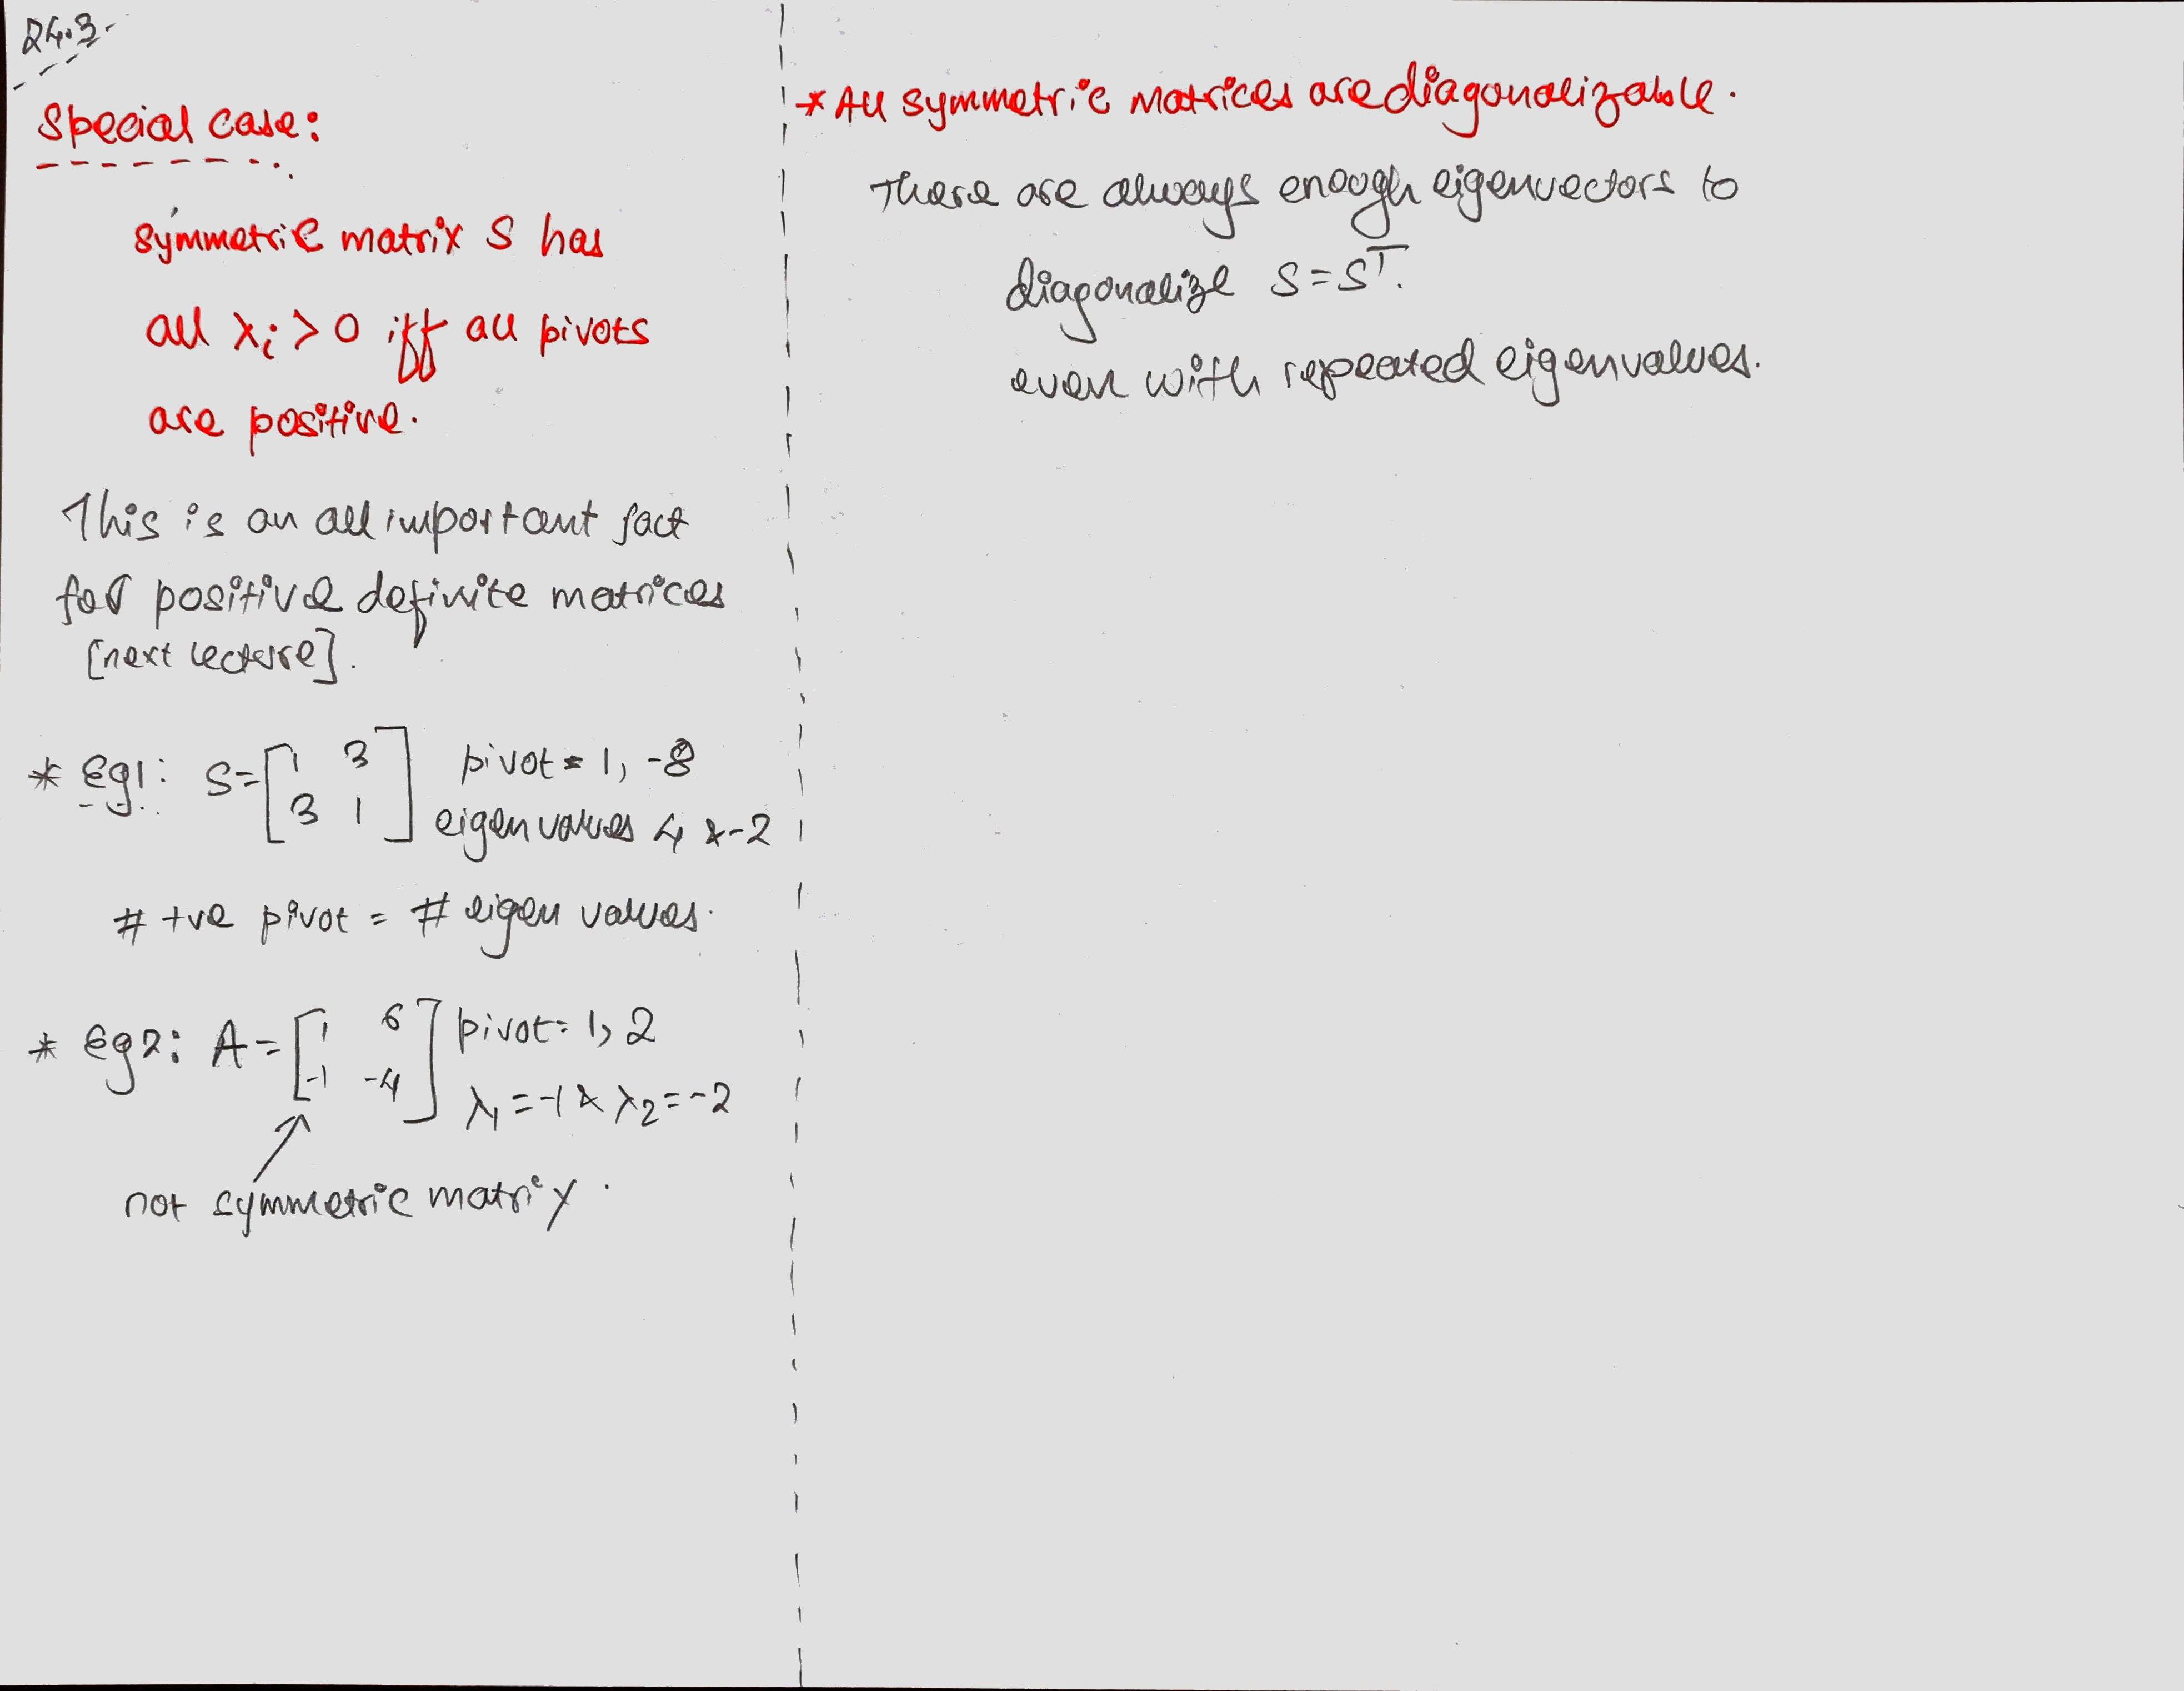 24.3.
Special case:
symmetric matrix S has
all λi > 0 iff all pivots
are positive.
This is an all important fact
for positive definite matrices
[next lecture].
* Eg1: S = [1 3
3 1] pivot = 1, -8
eigenvalues 4 & -2
# +ve pivot = # eigen values.
* Eg2: A = [1 6
-1 -4] pivot = 1, 2
λ1 = -1 & λ2 = -2
not symmetric matrix.
* All symmetric matrices are diagonalizable.
There are always enough eigenvectors to
diagonalize S = S^T.
even with repeated eigenvalues.